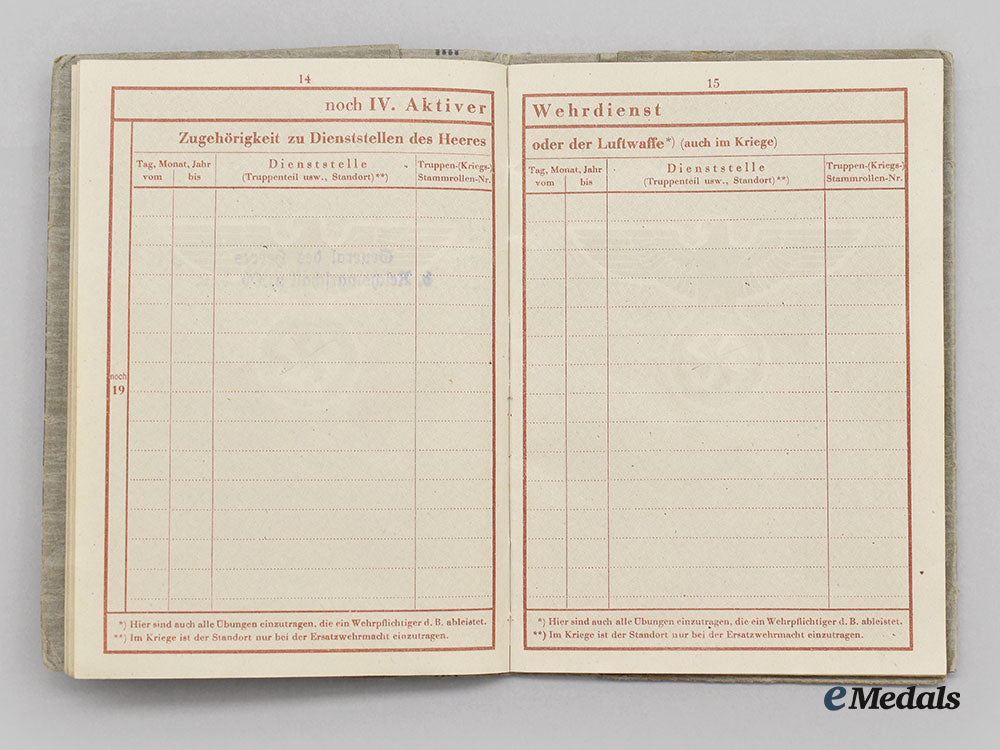 14
noch IV. Aktiver
Zugehörigkeit zu Dienststellen des Heeres
Tag, Monat, Jahr
vom bis
Dienststelle
(Truppenteil usw., Standort)**)
Truppen-(Kriegs-)
Stammrollen-Nr.
noch
19
*) Hier sind auch alle Übungen einzutragen, die ein Wehrpflichtiger d. B. ableistet.
**) Im Kriege ist der Standort nur bei der Ersatzwehrmacht einzutragen.
15
Wehrdienst
oder der Luftwaffe*) (auch im Kriege)
Tag, Monat, Jahr
vom bis
Dienststelle
(Truppenteil usw., Standort)**)
Truppen-(Kriegs-)
Stammrollen-Nr.
*) Hier sind auch alle Übungen einzutragen, die ein Wehrpflichtiger d. B. ableistet.
**) Im Kriege ist der Standort nur bei der Ersatzwehrmacht einzutragen.
eMedals